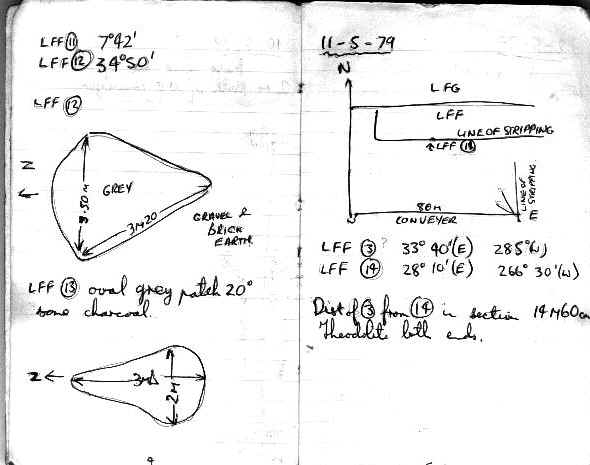 LFF 11 7°42'
LFF 12 34°50'
LFF 12
N
GREY
3M20
GRAVEL &
BRICK
EARTH
LFF 13 oval grey patch 20°
some charcoal.
N
2M
11-5-79
N
LFG
LFF
LINE OF STRIPPING
LFF
LINE OF
STRIPPING
80M
CONVEYER
E
LFF 3 ? 33° 40'(E) 285°(W)
LFF 14 28° 10'(E) 266° 30'(W)
Dist of 3 from 14 in section 14M60cm
Theodolite both ends.